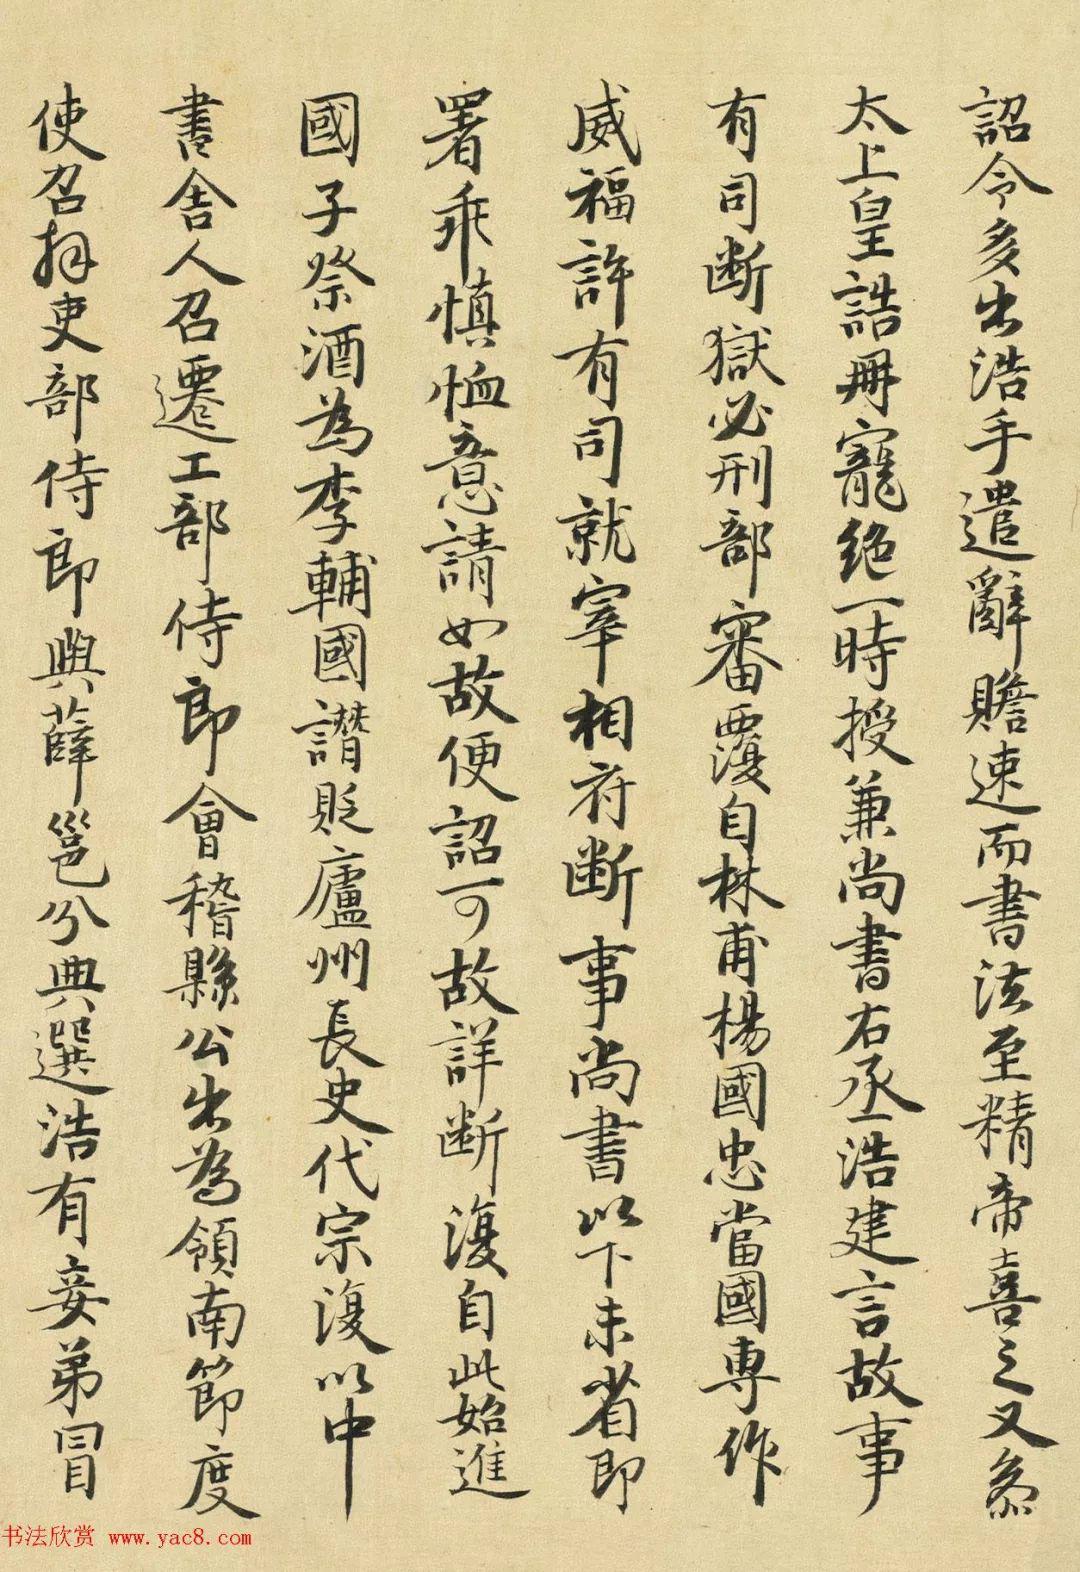 詔令多出浩手遣辭贍速而書法至精帝喜之又叅
太上皇誥冊寵絶一時授兼尚書右丞浩建言故事
有司断獄必刑部審覆自林甫楊國忠當國専作
威福許有司就宰相府断事尚書以下未省即
署乖慎恤意請如故便詔可故詳断復自此始進
國子祭酒為李輔國譖貶廬州長史代宗復以中
書舍人召遷工部侍郎會稽縣公出為領南節度
使召拜吏部侍郎與薛邕分典選浩有妾弟冒
书法欣赏 www.yac8.com